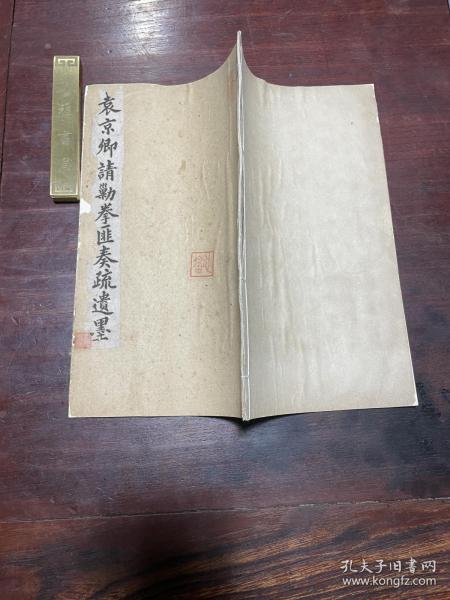 袁京卿請勦拳匪奏疏遺墨
孔夫子旧书网
www.kongfz.com